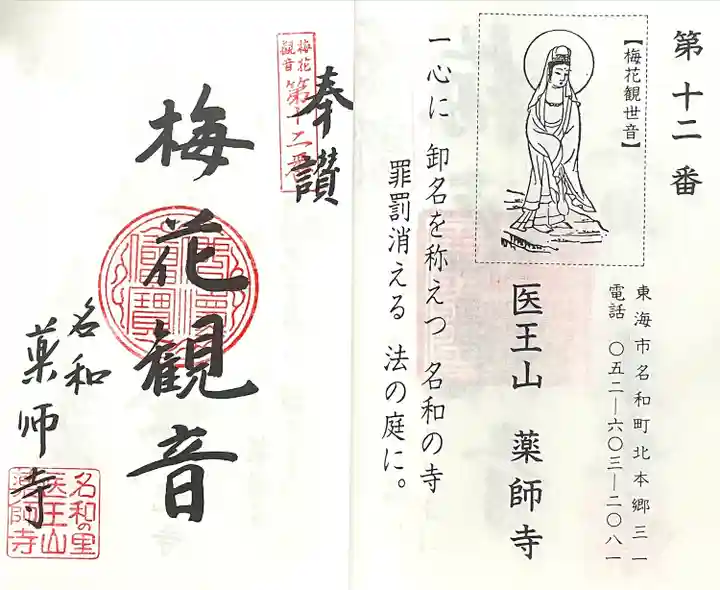 第十二番
【梅花観世音】
東海市名和町北本郷三一
電話 〇五二―六〇三―二〇八一
医王山 薬師寺
一心に 卸名を称えつ 名和の寺
罪罰消える 法の庭に。
奉讃
梅花
観音
第十二番
梅花観音
名和
薬師寺
名和の里
医王山
薬師寺